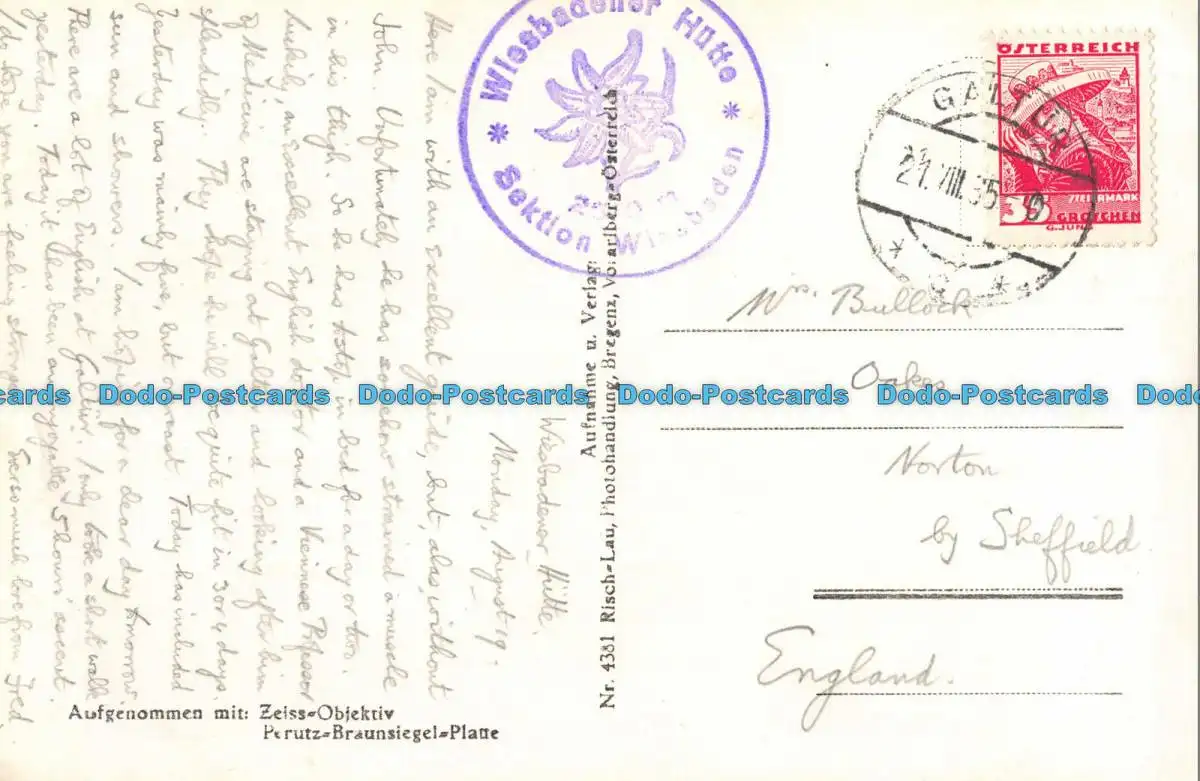 Wiesbadener Hütte.
Monday, August 19.
Here I'm with excellent guide, but, alas, without
John. Unfortunately he has somehow strained a muscle
in his thigh. So he has to stop in bed for a day or two.
Luckily, an excellent English doctor and a Viennese Professor
of Medicine are staying at Galtür and looking after him
splendidly. They hope he will be quite fit in 3 or 4 days.
Yesterday was mainly fine, but on mist. Today has included
sun and showers. I am hoping for a clear day tomorrow
There are a lot of English at Galtür. I only took a short walk
yesterday. Today it has been an enjoyable 5 hours' ascent
I do hope you are feeling stronger. Ever so much love from Fred
Wiesbadener Hütte
* Sektion Wiesbaden *
Aufnahme u. Verlag:
Nr. 4381 Risch=Lau, Photohandlung, Bregenz, Vorarlberg=Österreich
ÖSTERREICH
STEIERMARK
GROSCHEN
G.JUNG
GALTÜR
21.VIII.35
Mrs. Bullock
Oakes
Norton
by Sheffield.
England.
Dodo-Postcards Dodo-Postcards Dodo-Postcards Dodo-Postcards
Aufgenommen mit: Zeiss=Objektiv
Perutz=Braunsiegel=Platte